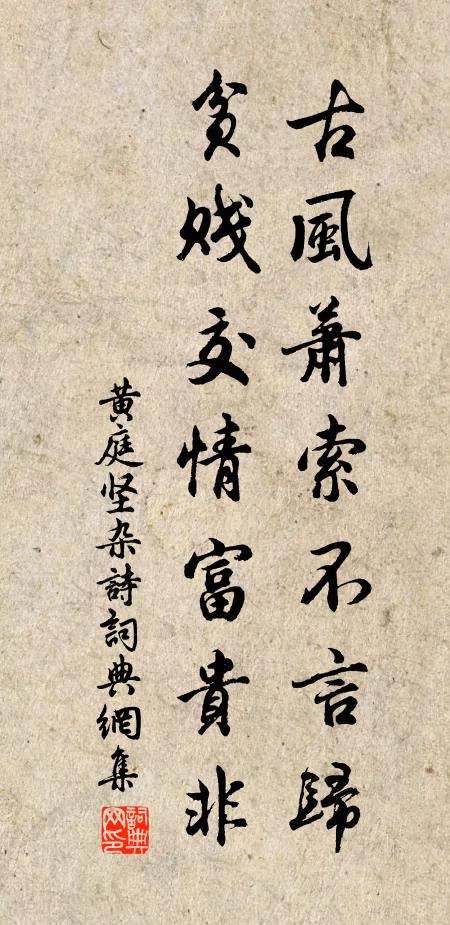 古風蕭索不言歸
貧賤交情富貴非
黄庭坚杂詩詞典網集
詞典網印